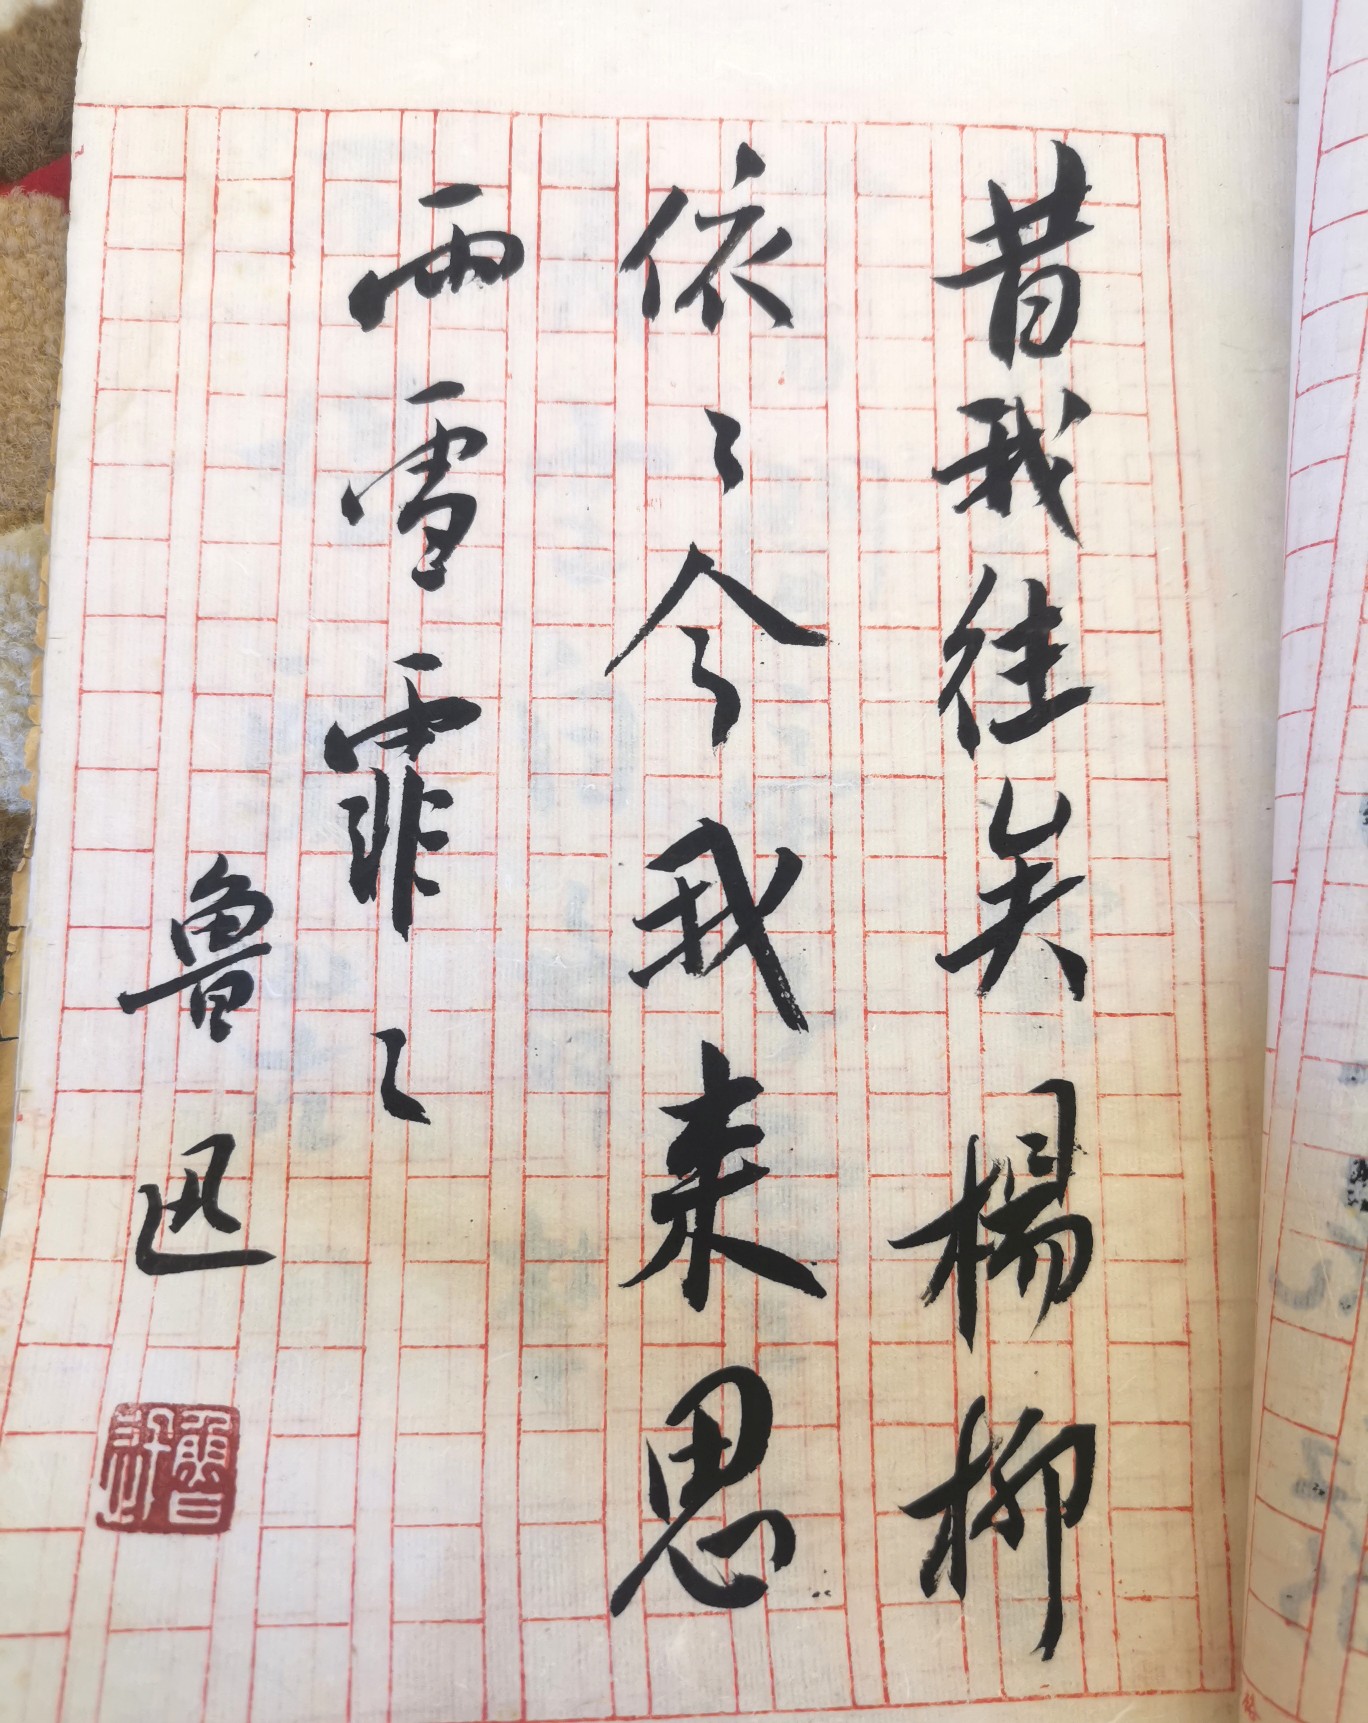 昔我往矣楊柳
依〻今我来思
雨雪霏〻
鲁迅